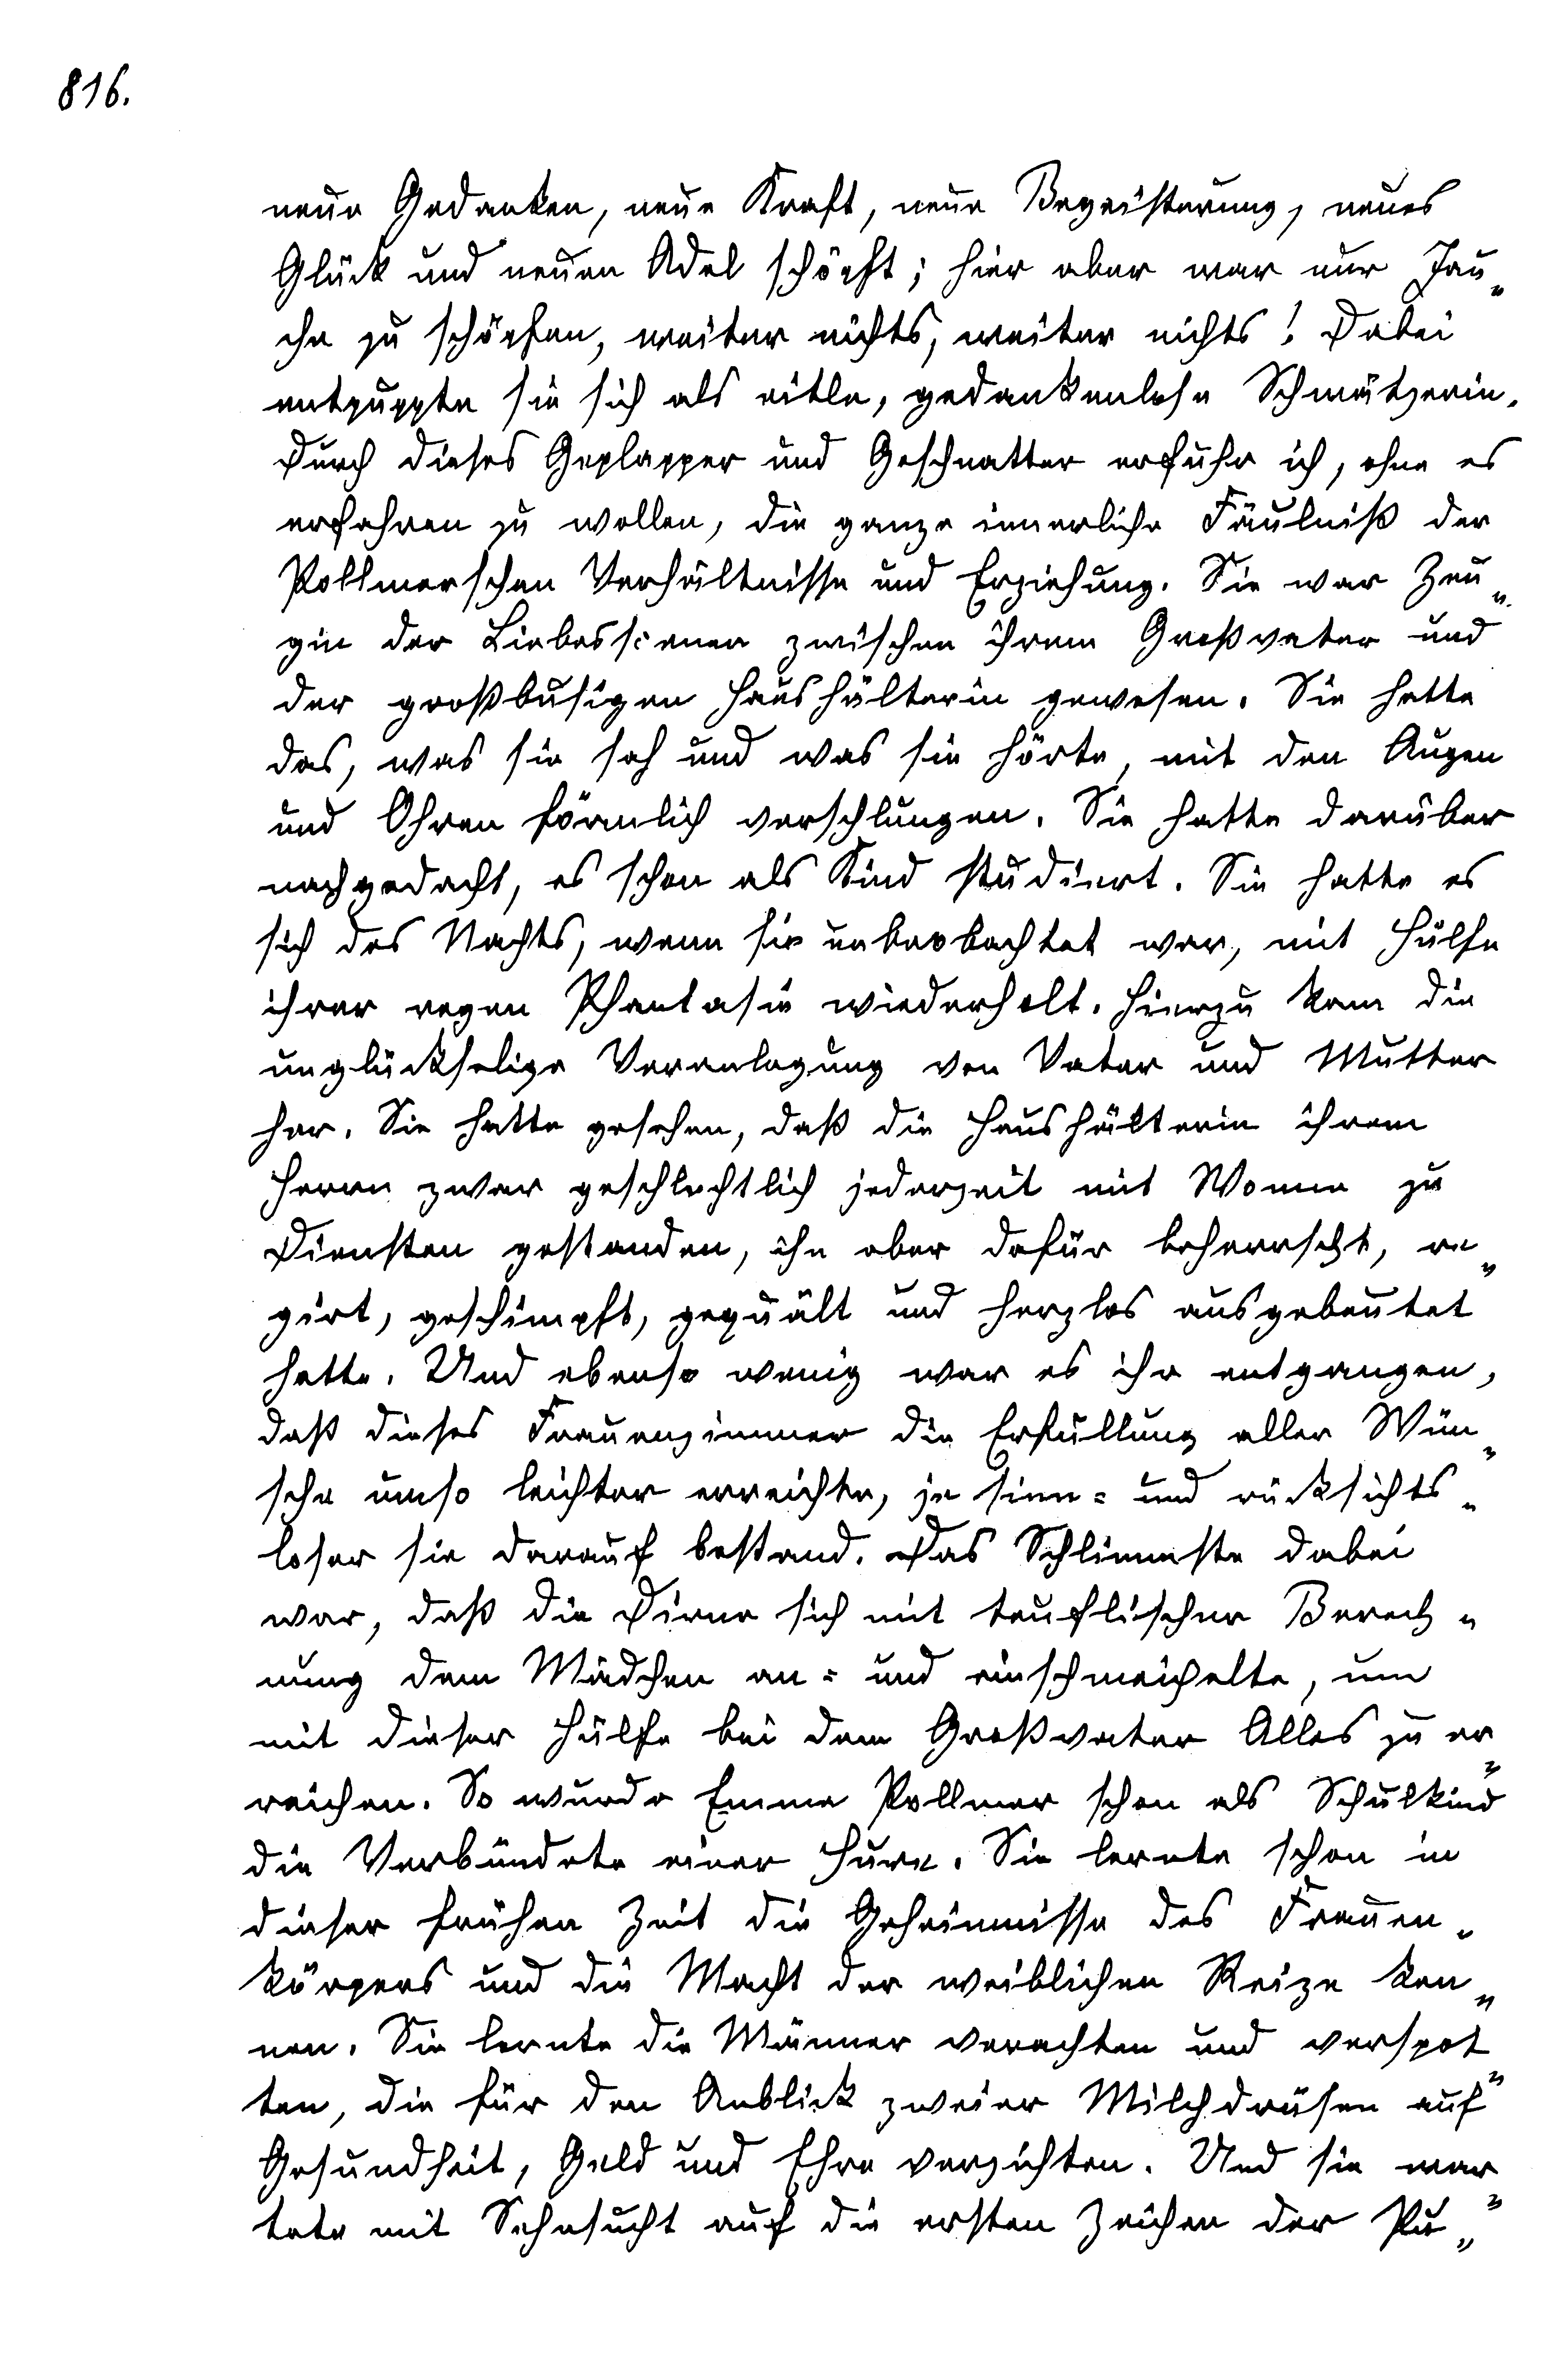 816.
neue Gedanken, neue Kraft, neue Begeisterung, neues
Glück und neuen Adel schöpft; hier aber war nur Jau„
che zu schöpfen, weiter nichts, weiter nichts! Dabei
entpuppte sie sich als eitle, gedankenlose Schwätzerin.
Durch dieses Geplapper und Geschnatter erfuhr ich, ohne es
erfahren zu wollen, die ganze innerliche Fäulniß der
Pollmerschen Verhältnisse und Erziehung. Sie war Zeu„
gin der Liebesscenen zwischen ihrem Großvater und
der großbusigen Haushälterin gewesen. Sie hatte
das, was sie sah und was sie hörte, mit den Augen
und Ohren förmlich verschlungen. Sie hatte darüber
nachgedacht, es schon als Kind studiert. Sie hatte es
sich des Nachts, wenn sie unbeobachtet war, mit Hülfe
ihrer regen Phantasie wiederholt. Hierzu kam die
unglückselige Veranlagung von Vater und Mutter
her. Sie hatte gesehen, daß die Haushälterin ihrem
Herrn zwar geschlechtlich jederzeit mit Wonne zu
Diensten gestanden, ihn aber dafür beherrscht, re„
girt, geschimpft, gequält und herzlos ausgebeutet
hatte. Und ebenso wenig war es ihr entgangen,
daß dieses Frauenzimmer die Erfüllung aller Wün„
sche umso leichter erreichte, je sinn= und rücksichts„
loser sie darauf bestand. Das Schlimmste dabei
war, daß die Dirne sich mit teuflischer Berech„
nung dem Mädchen an= und einschmeichelte, um
mit dieser Hülfe bei dem Großvater Alles zu er„
reichen. So wurde Emma Pollmer schon als Schulkind
die Verbündete einer Hure. Sie lernte schon in
dieser frühen Zeit die Geheimnisse des Frauen„
körpers und die Macht der weiblichen Reize ken„
nen. Sie lernte die Männer verachten und verspot„
ten, die für den Anblick zweier Milchdrüsen auf
Gesundheit, Geld und Ehre verzichten. Und sie war„
tete mit Sehnsucht auf die ersten Zeichen der Pu„